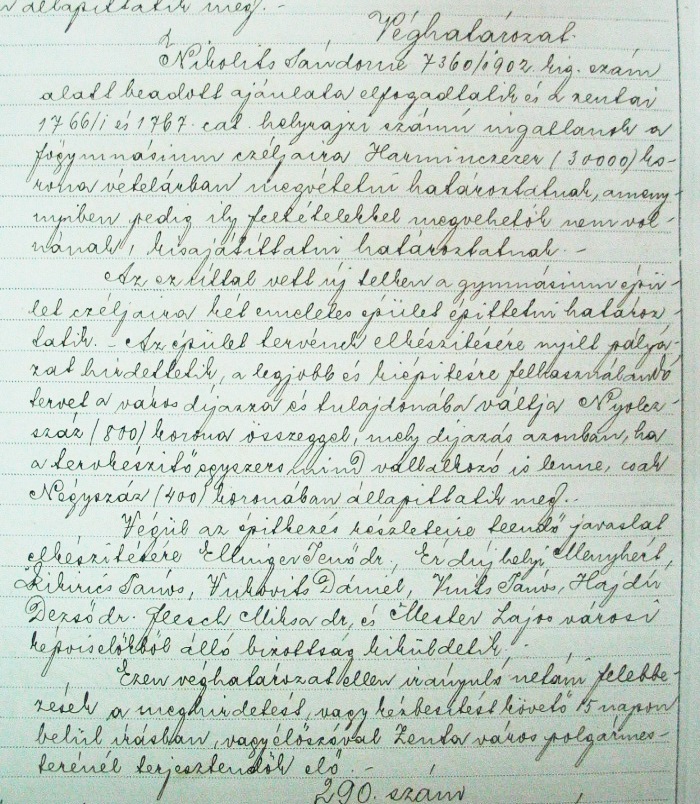 állapittatik meg. -
Véghatározat.
Nikolits Sándorné 7360/1902. kig. szám
alatt beadott ajánlata elfogadtatik és a zentai
1766/1 és 1767. cat. helyrajzi számú ingatlanok a
főgymnásium czéljaira Harminczezer (30000) ko-
rona vételárban megvétetni határoztatnak, ameny-
nyiben pedig ily feltételekkel megvehetők nem vol-
nának, kisajátittatni határoztatnak. -
Az ez úttal vett új telken a gymnásium épü-
let czéljaira két emeletes épület épittetni határoz-
tatik. - Az épület tervének elkészitésére nyilt pályá-
zat hirdettetik, a legjobb és kiépitésre felhasználandó
tervet a város díjazza és tulajdonába váltja Nyolcz-
száz (800) korona összeggel, mely díjazás azonban, ha
a tervkészitő egyszersmind vállalkozó is lenne, csak
Négyszáz (400) koronában állapittatik meg. -
Végül az épitkezés részleteire teendő javaslat
elkészitésére Ellinger Jenő dr, Érdújhelyi Menyhért,
Kikirics János, Vukovits Dániel, Vuits János, Hajdú
Dezső dr. Flesch Miksa dr, és Mester Lajos városi
képviselőkből álló bizottság kiküldetik. -
Ezen véghatározat ellen irányuló netáni felebbe-
zések a meghirdetést, vagy kézbesitést követő 15 napon
belül irásban, vagy élőszóval Zenta város polgármes-
terénél terjesztendők elő. -
290. szám